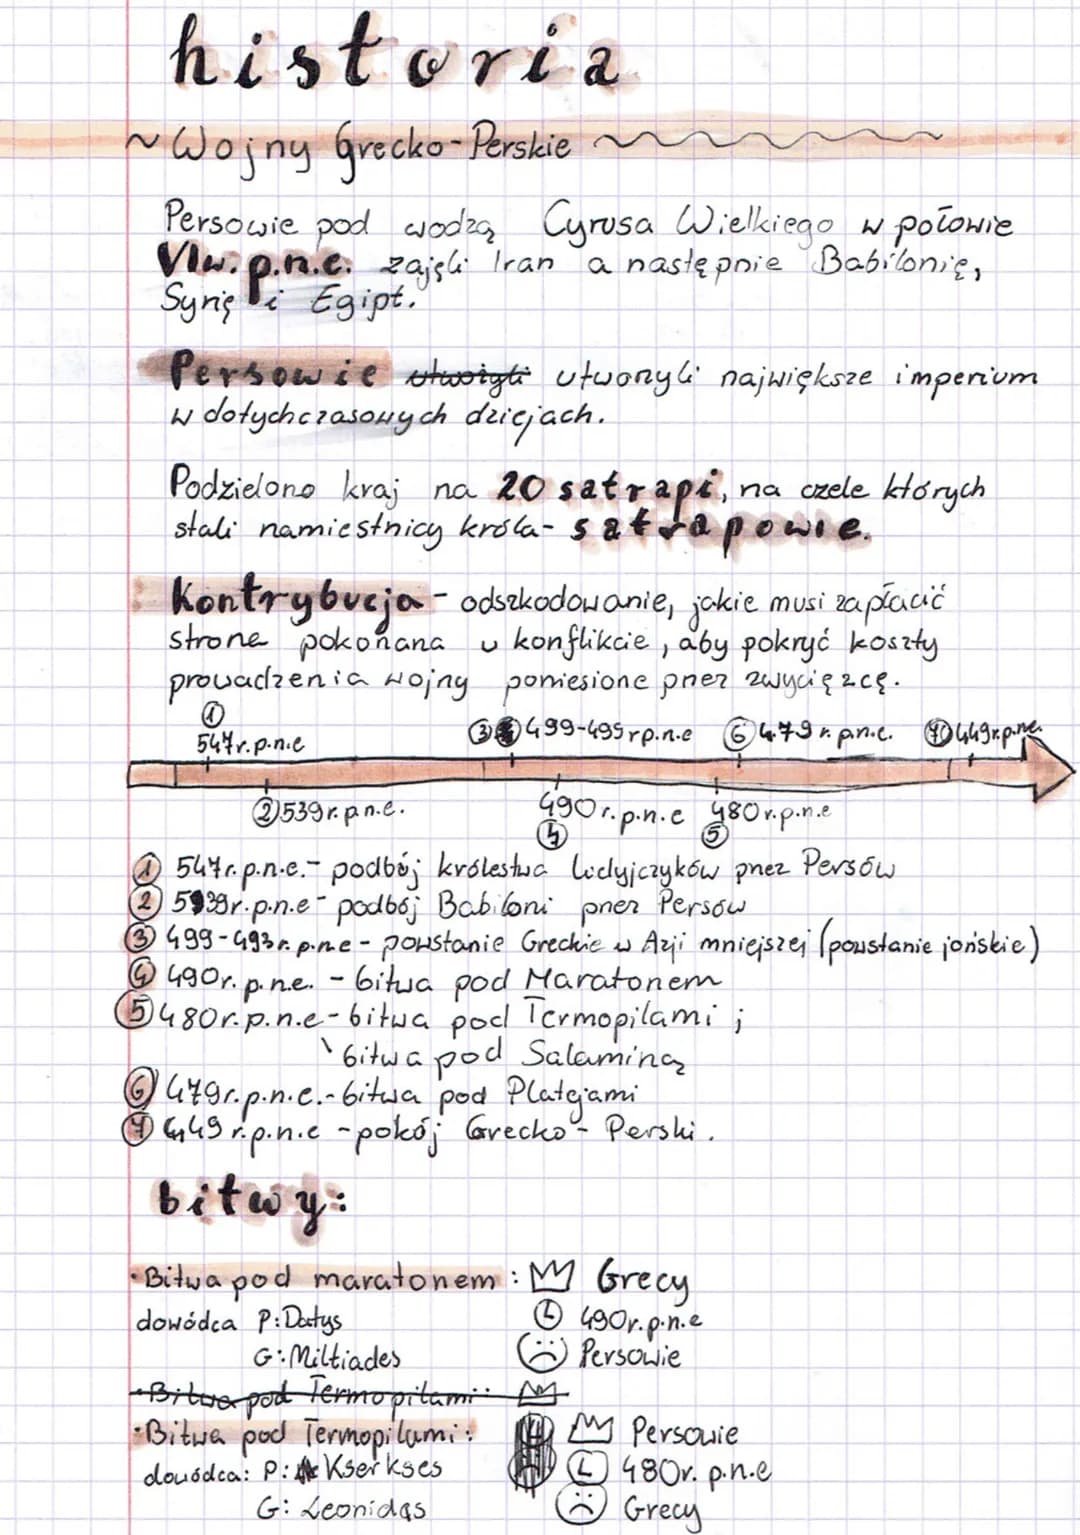 historia
~ Wojny Grecko-Perskie
Persowie pod wodzą Cyrusa Wielkiego w połowie
VIw. p.n.e. zajęli Iran a następnie Babilonię,
Syrię i Egipt.
Persowie utwożyli utworzyli największe imperium
w dotychczasowych dziejach.
Podzielono kraj na 20 satrapi, na czele których
stali namiestnicy króla- satrapowie.
Kontrybucja - odszkodowanie, jakie musi zapłacić
strone pokonana w konflikcie, aby pokryć koszty
prowadzenia wojny poniesione przez zwycięzcę.
① 547r.p.n.e ③ 499-495rp.n.e ⑥ 479 r. p.n.e. ⑦ 449r.p.n.e.
② 539r.p.n.e. 490 r.p.n.e ④ 480r.p.n.e ⑤
① 547r.p.n.e.- podbój królestwa Lidyjczyków przez Persów
② 539r.p.n.e- podbój Babiloni przez Persów
③ 499-493r.p.n.e - powstanie Greckie w Azji mniejszej (powstanie jońskie)
④ 490r. p.n.e. - bitwa pod Maratonem
⑤ 480r.p.n.e- bitwa pod Termopilami ;
bitwa pod Salaminą
⑥ 479r.p.n.e.- bitwa pod Platejami
⑦ 449 r.p.n.e - pokój Grecko- Perski.
bitwy:
• Bitwa pod maratonem : Grecy
dowódca P: Datys 490r.p.n.e
G: Miltiades Persowie
• Bitwa pod Termopilami:
• Bitwa pod Termopilami: Persowie
dowódca: P: Kserkses 480r. p.n.e
G: Leonidas Grecy